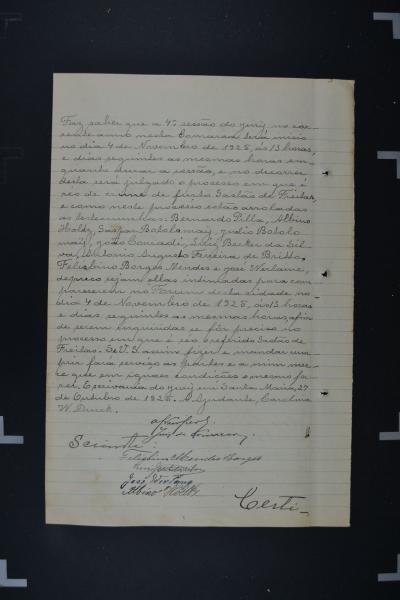 Faz saber que a 4ª sessão do jury no cor-
rente anno nesta Comarca terá inicio
no dia 4 de Novembro de 1925, ás 13 horas,
e dias seguintes as mesmas horas em-
quanto durar a sessão, e no decorrer
desta será julgado o processo em que é
réo de crime de furto Gastão de Freitas,
e como neste processo estão arroladas
as testemunhas: Bernardo Pilla, Albino
Holtz, Gaspar Bortolomay, Julio Bortolo
may, João Conradi, Luiz Becker da Sil
va, Antonio Augusto Ferreira de Britto,
Felisbino Borges Mendes e José
deprecо sejam ellas intimadas para com
parecerem no Forum desta cidade no
dia 4 de Novembro de 1925, ás 13 horas
e dias seguintes as mesmas horas, afim
de serem inquiridas se fôr preciso no
processo em que é reo o referido Gastão de
Freitas. Se V. S. assim fizer e mandar cum
prir fará serviço ás partes e a mim mer-
cê que em iguaes condições o mesmo fa-
rei. Escrivania do jury em Santa Maria, 27
de Outubro de 1925. O Ajudante, Carolino
W.
Juiz da Comarca.
Scientes:
Felisbino Mendes Borges
José
Albino Holtz
Certi-